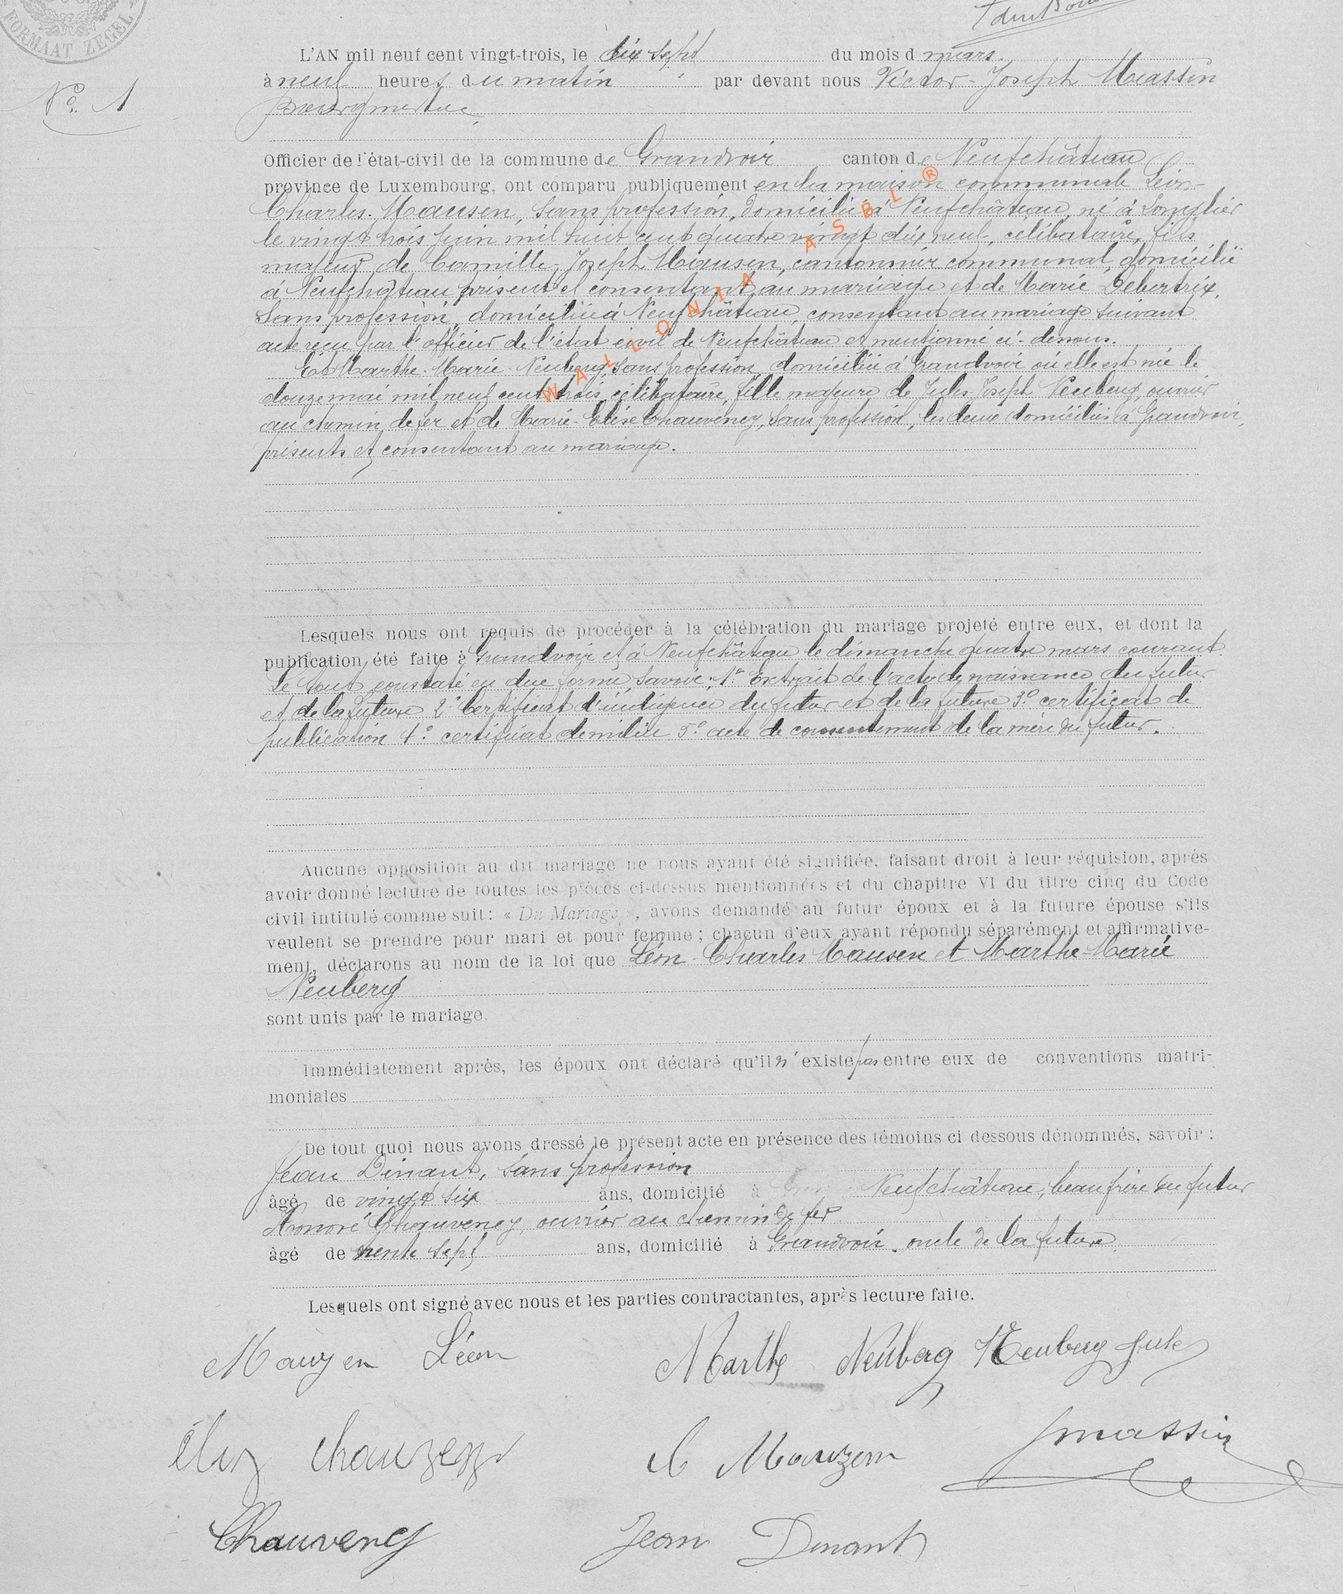 FORMAAT ZEGEL
No. 1
L'AN mil neuf cent vingt-trois, le dix sept du mois d mars.
à neuf heures du matin par devant nous Victor-Joseph Massin
bourgmestre
Officier de l'état-civil de la commune de Grandvoir canton de Neufchâteau
province de Luxembourg, ont comparu publiquement en la maison communale Léon-
Charles Mausen, sans profession, domicilié à Neufchâteau, né à
le vingt trois juin mil huit cent quatre vingt dix neuf, célibataire, fils
majeur de Camille-Joseph Mausen, cantonnier communal, domicilié
à Neufchâteau présent et consentant au mariage et de Marie
sans profession, domiciliée à Neufchâteau, consentant au mariage suivant
acte reçu par l'officier de l'état civil de Neufchâteau et mentionné ci-dessous.
Et Marthe-Marie Neuberg, sans profession, domiciliée à Grandvoir où elle est née le
douze mai mil neuf cent trois, célibataire, fille majeure de Jules Joseph Neuberg, ouvrier
au chemin de fer et de Marie-Elise Chauvency, sans profession, les deux domiciliés à Grandvoir,
présents et consentant au mariage.
WALLONIA ASBL ®
Lesquels nous ont requis de procéder à la célébration du mariage projeté entre eux, et dont la
publication été faite à Grandvoir et à Neufchâteau le dimanche quatre mars courant
le tout constaté en due forme, savoir: 1° Extrait de l'acte de naissance du futur
et de la future 2° Certificat d'indigence du futur et de la future 3° certificat de
publication 4° certificat de milice 5° acte de consentement de la mère du futur.
Aucune opposition au dit mariage ne nous ayant été signifiée, faisant droit à leur réquision, après
avoir donné lecture de toutes les pièces ci-dessus mentionnées et du chapitre VI du titre cinq du Code
civil intitulé comme suit: « Du Mariage », avons demandé au futur époux et à la future épouse s'ils
veulent se prendre pour mari et pour femme; chacun d'eux ayant répondu séparément et affirmative-
ment, déclarons au nom de la loi que Léon-Charles Mausen et Marthe-Marie
Neuberg
sont unis par le mariage.
Immédiatement après, les époux ont déclaré qu'il n'existe pas entre eux de conventions matri-
moniales
De tout quoi nous avons dressé le présent acte en présence des témoins ci dessous dénommés, savoir:
Jean Dinant, sans profession
âgé de vingt six ans, domicilié à Neufchâteau, beau frère du futur
Honoré Chauvency, ouvrier au chemin de fer
âgé de trente sept ans, domicilié à Grandvoir, oncle de la future.
Lesquels ont signé avec nous et les parties contractantes, après lecture faite.
Mauzen Léon Marthe Neuberg Neuberg Jules
C Mauzen Jmassin
Chauvency Jean Dinant